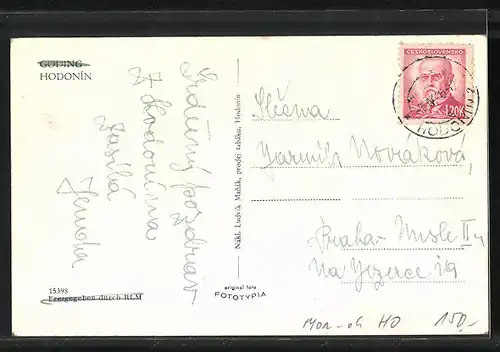 GÖDING
HODONÍN
Srdečný pozdrav
z Hodonína
zasílá
Jenda
15398
Freigegeben durch RLM
Nákl. Ludvík Maňák, prodej tabáku, Hodonín
original foto
FOTOTYPIA
ČESKOSLOVENSKO
1.20 Kčs
HODONÍN 2
Slečna
Jarmila Nováková,
Praha - Nusle II
Na Jezerce 19
Mor-ch HO 150,-